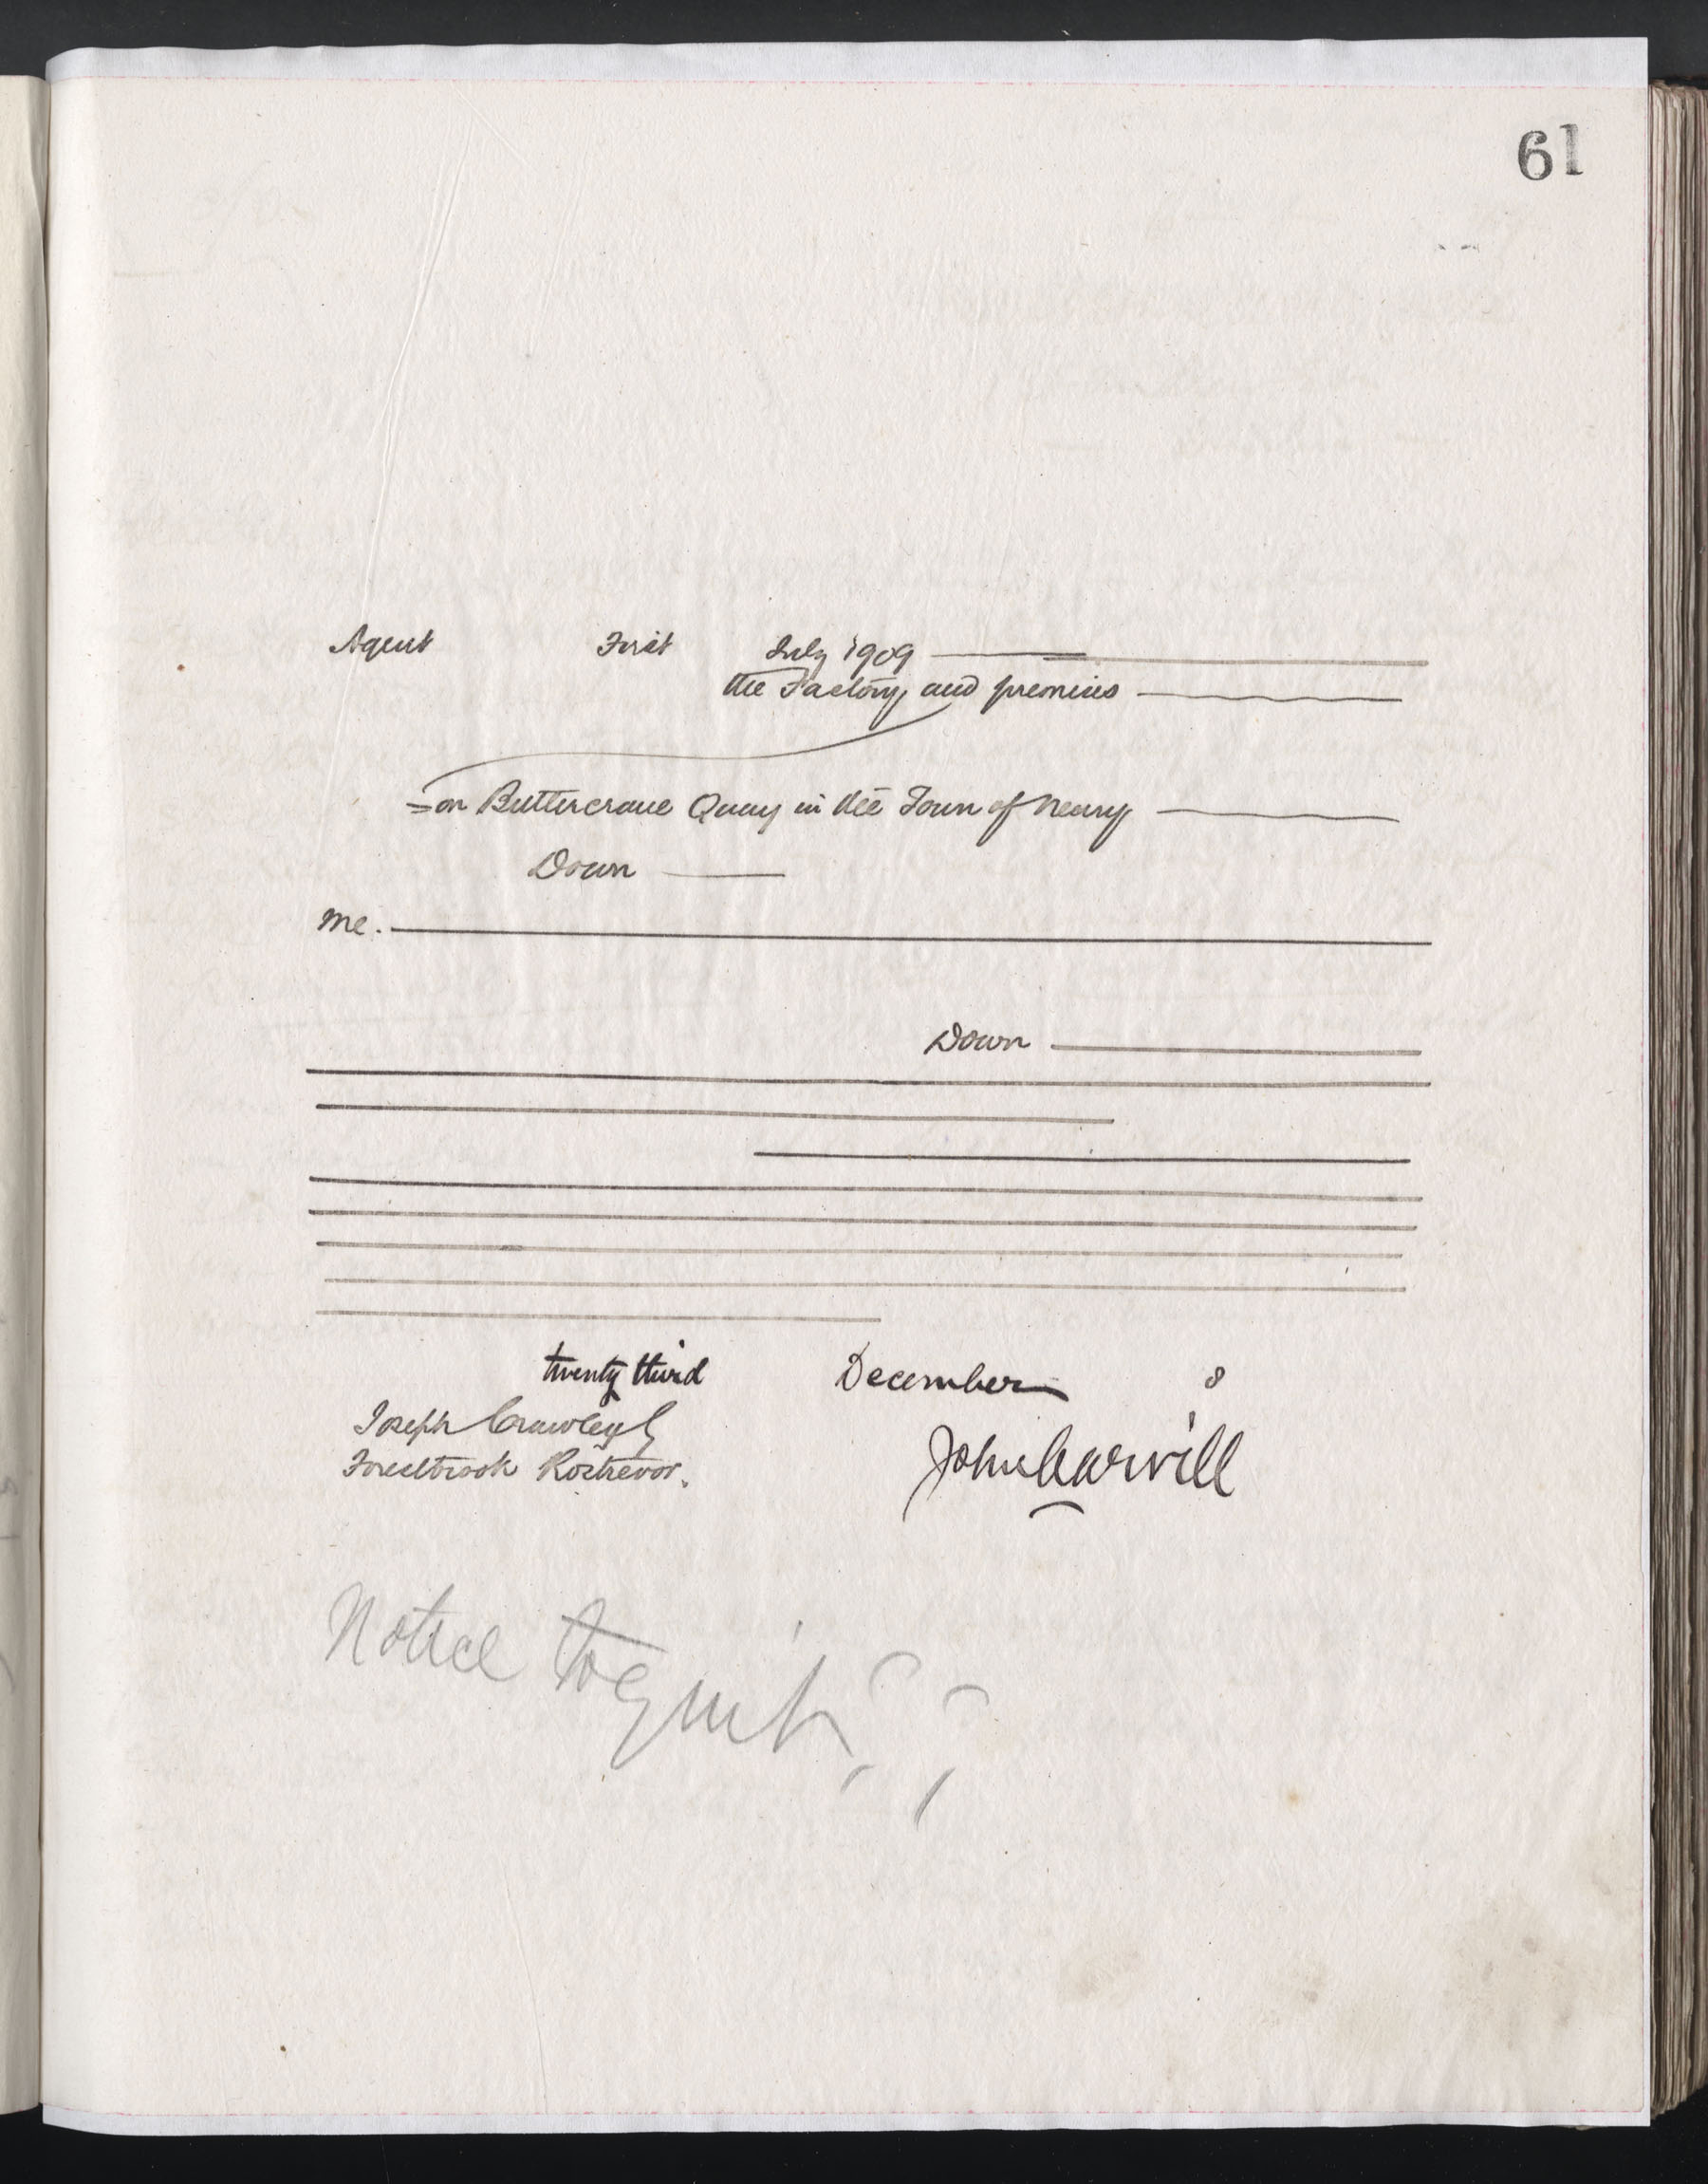 61
Agent First July 1909
the Factory and premises
on Buttercrane Quay in the Town of Newry
Down
me.
Down
twenty third December 8
Joseph Crawley
Forestbrook Rostrevor.
John Carvill
Notice to Quit